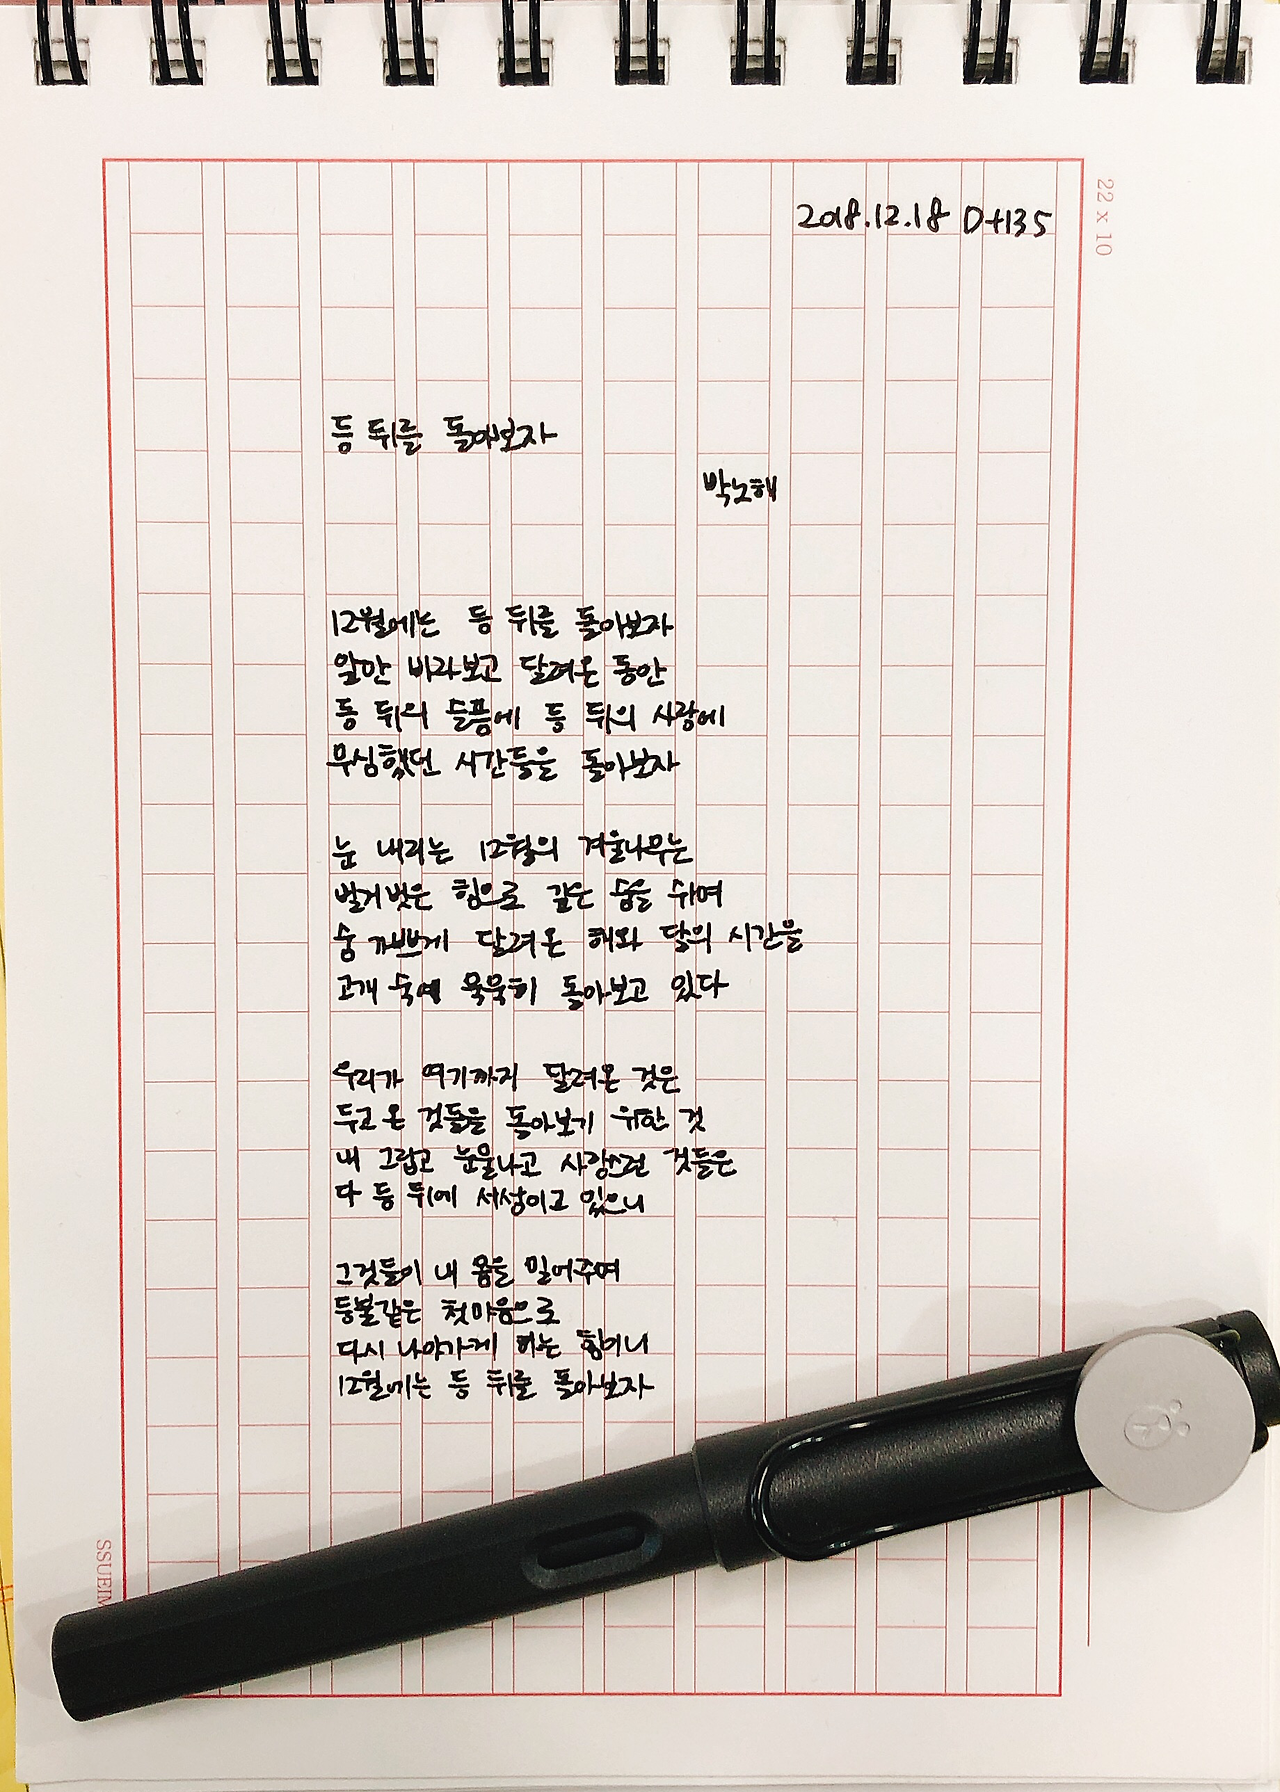 22 x 10
2018.12.18 D+135
등 뒤를 돌아보자
박노해
12월에는 등 뒤를 돌아보자
앞만 바라보고 달려온 동안
등 뒤의 슬픔에 등 뒤의 사랑에
무심했던 시간들을 돌아보자
눈 내리는 12월의 겨울나무는
벌거벗은 힘으로 깊은 숨을 쉬며
숨 가쁘게 달려온 해와 달의 시간을
고개 숙여 묵묵히 돌아보고 있다
우리가 여기까지 달려온 것은
두고 온 것들을 돌아보기 위한 것
내 그립고 눈물나고 사랑스런 것들은
다 등 뒤에 서성이고 있으니
그것들이 내 몸을 밀어주며
등불같은 첫마음으로
다시 나아가게 하는 힘이니
12월에는 등 뒤를 돌아보자